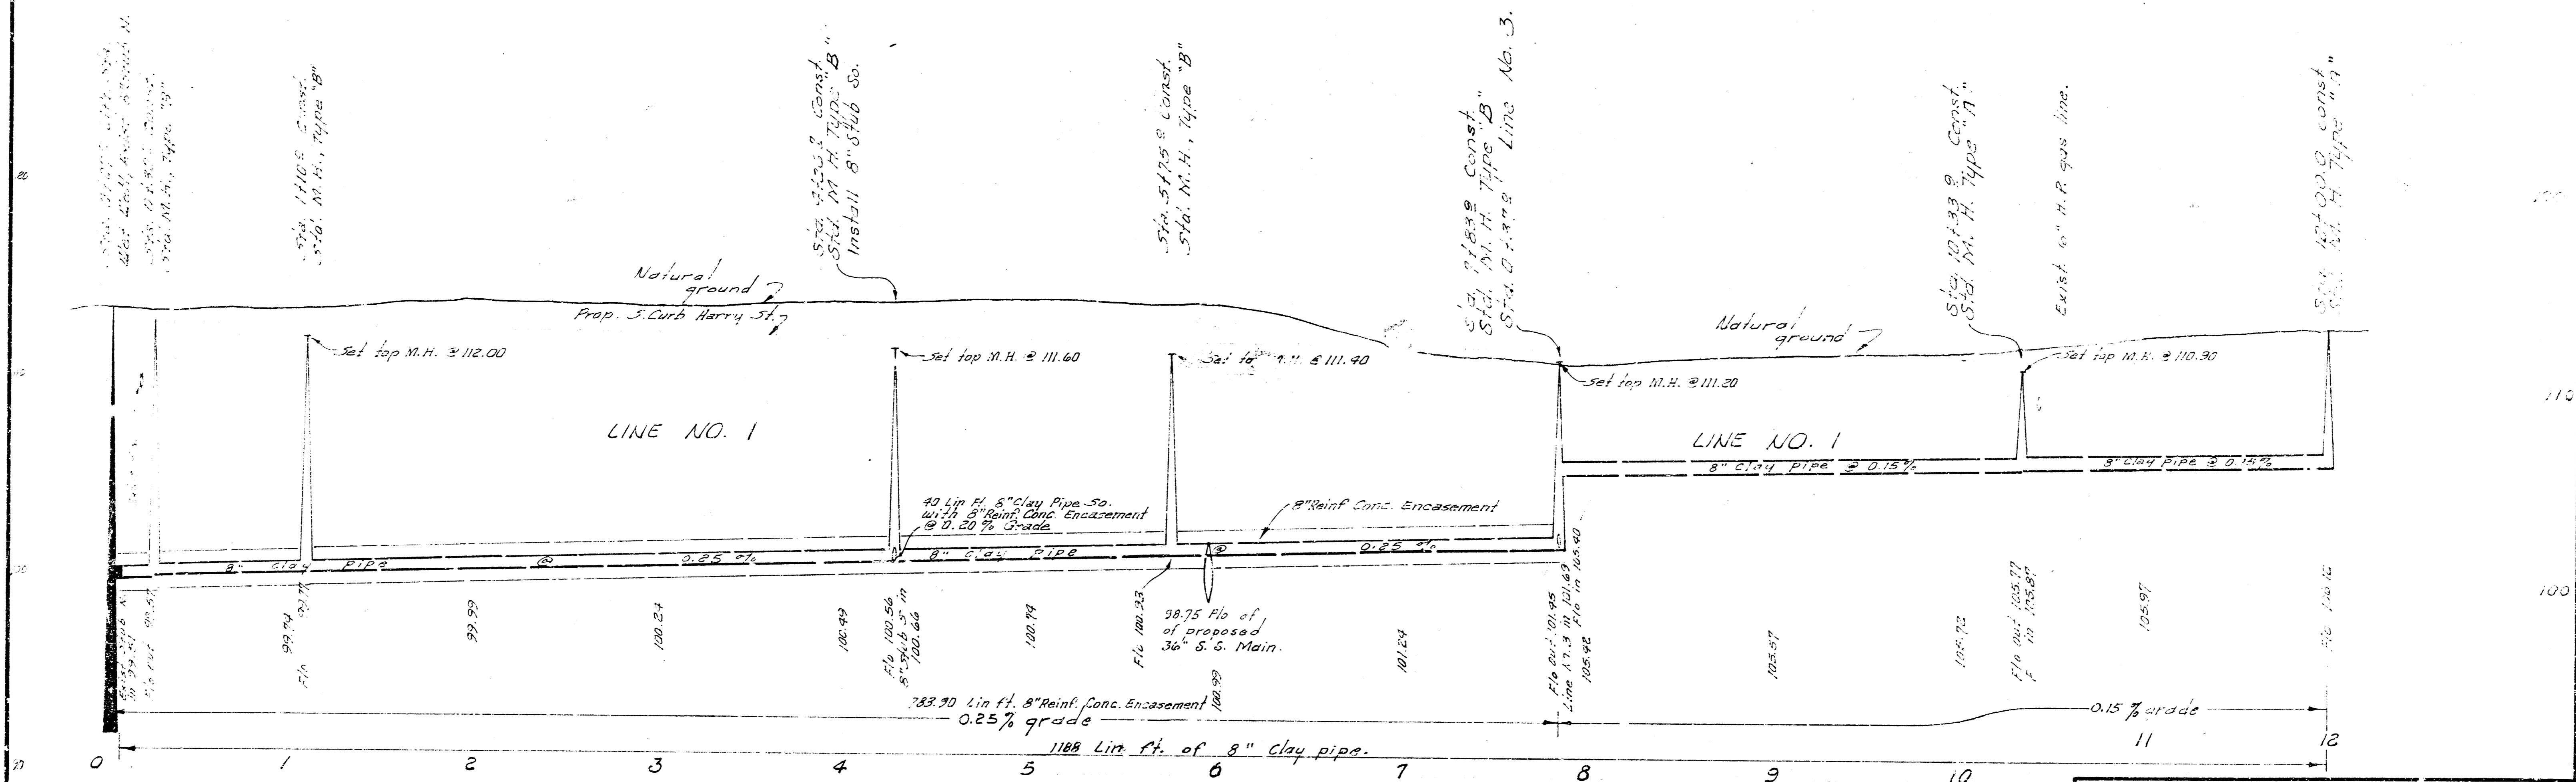 Std. M.H., Type "B"
Sta. 1+10
Std. M.H., Type "B"
Const.
Std. M H. Type "B"
Install 8" Stub So.
Sta. 5+75.9 Const.
Std. M.H., Type "B"
Sta. 7+83.9 Const.
Std. M. H. Type "B"
Sta. 0+37.9 Line No. 3.
Sta. 10+33.9 Const.
Std. M. H. Type "A"
Exist. 6" H.P. gas line.
const
M. H. Type "A"
Natural
ground
Prop. S. Curb Harry St.
Natural
ground
Set top M.H. @ 112.00
Set top M.H. @ 111.60
Set top M.H. @ 111.40
Set top M.H. @ 111.20
Set top M.H. @ 110.90
110
LINE NO. 1
LINE NO. 1
8" Clay pipe @ 0.15%
8" Clay pipe @ 0.15%
40 Lin Ft. 8" Clay Pipe So.
with 8" Reinf. Conc. Encasement
@ 0.20% Grade
8" Reinf Conc. Encasement
8" Clay pipe @ 0.25 %
8" clay pipe @ 0.25 %
100
99.74
99.99
100.24
100.49
Flo 100.56
8" stub S in
100.66
100.74
Flo 100.93
98.75 Flo of
of proposed
36" S.S. Main.
100.99
101.24
Flo out 101.45
Line No. 3 in 101.69
105.42 Flo in 105.40
105.57
105.72
Flo out 105.77
in 105.87
105.97
Flo 106.12
783.90 Lin ft. 8" Reinf. Conc. Encasement
0.25% grade
0.15 % grade
1188 Lin ft. of 8" Clay pipe.
0 1 2 3 4 5 6 7 8 9 10 11 12